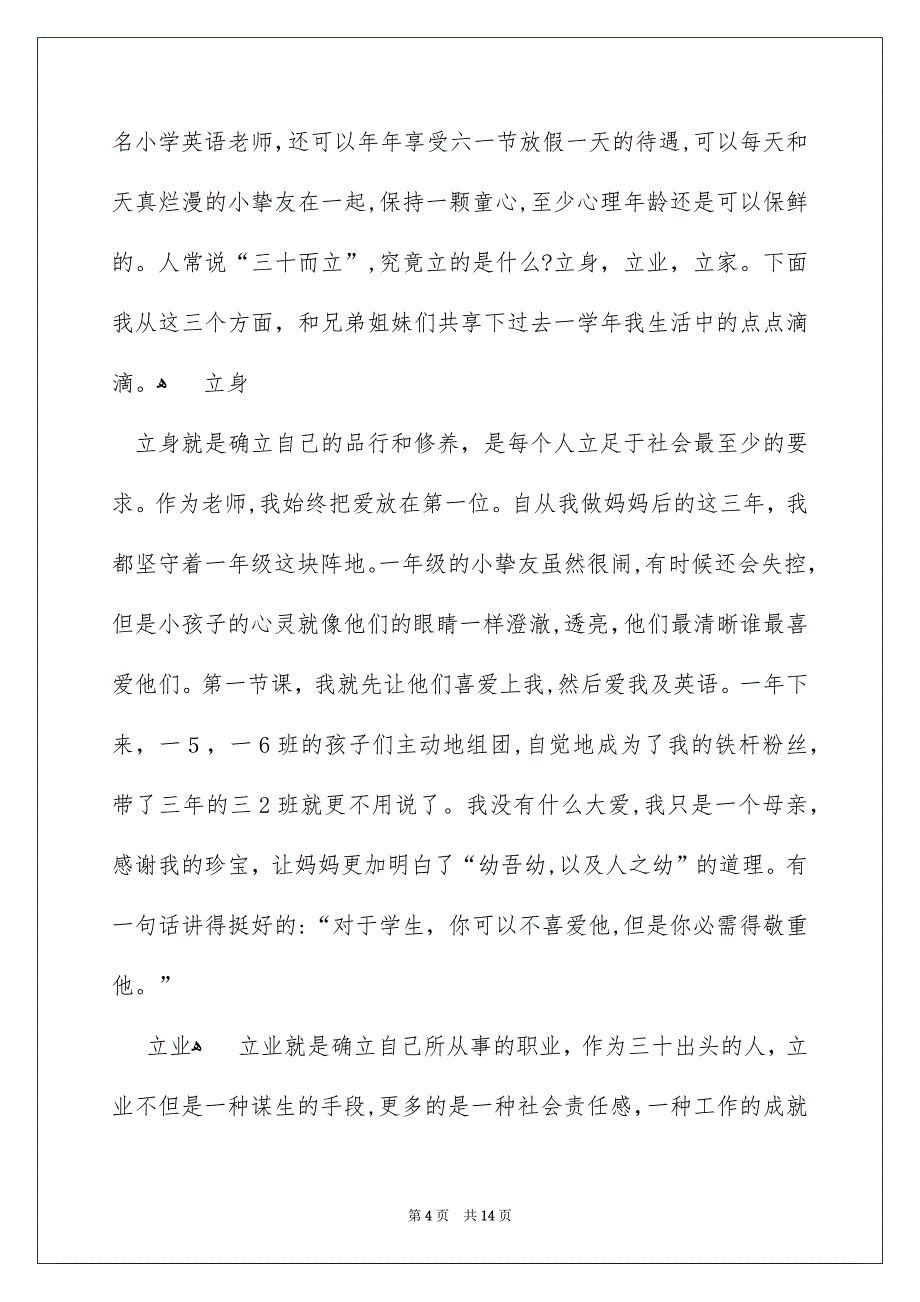 名小学英语老师,还可以年年享受六一节放假一天的待遇,可以每天和
天真烂漫的小挚友在一起,保持一颗童心,至少心理年龄还是可以保鲜
的。人常说“三十而立”,究竟立的是什么?立身，立业，立家。下面
我从这三个方面，和兄弟姐妹们共享下过去一学年我生活中的点点滴
滴。ﻫ 立身
立身就是确立自己的品行和修养，是每个人立足于社会最至少的要
求。作为老师,我始终把爱放在第一位。自从我做妈妈后的这三年，我
都坚守着一年级这块阵地。一年级的小挚友虽然很闹,有时候还会失控,
但是小孩子的心灵就像他们的眼睛一样澄澈,透亮，他们最清晰谁最喜
爱他们。第一节课，我就先让他们喜爱上我,然后爱我及英语。一年下
来，一５，一６班的孩子们主动地组团,自觉地成为了我的铁杆粉丝,
带了三年的三２班就更不用说了。我没有什么大爱,我只是一个母亲,
感谢我的珍宝，让妈妈更加明白了“幼吾幼,以及人之幼”的道理。有
一句话讲得挺好的:“对于学生，你可以不喜爱他,但是你必需得敬重
他。”
立业ﻫ 立业就是确立自己所从事的职业，作为三十出头的人，立
业不但是一种谋生的手段,更多的是一种社会责任感，一种工作的成就
第 4 页 共 14 页